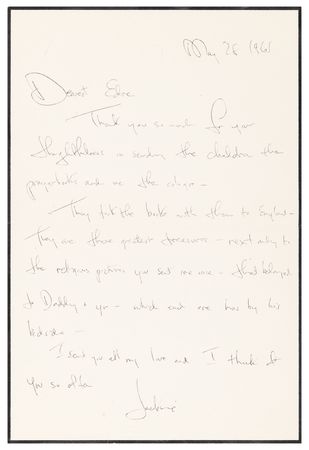 May 28 1965
Dearest Edie
Thank you so much for your
thoughtfulness in sending the children the
prayerbooks and me the
They took the books with them to England -
They are their greatest treasures - next only to
the religious pictures you sent me once - that belonged
to Daddy & you - which each one has by his
bedside -
I send you all my love and I think of
you so often
Jackie